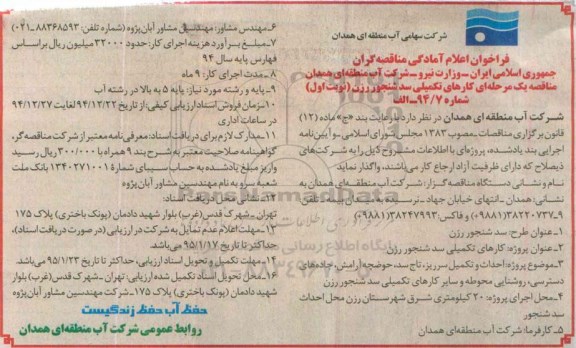 شرکت سهامی آب منطقه ای همدان
فراخوان اعلام آمادگی مناقصه گران
جمهوری اسلامی ایران - وزارت نیرو - شرکت آب منطقه‌ای همدان
مناقصه یک مرحله‌ای کارهای تکمیلی سد شنجور رزن (نوبت اول)
شماره ۹۴/۷-الف
شرکت آب منطقه‌ای همدان در نظر دارد با رعایت بند «ج» ماده (۱۲)
قانون برگزاری مناقصات -مصوب ۱۳۸۳ مجلس شورای اسلامی- و آیین‌نامه
اجرایی بند یادشده، پروژه‌ای با اطلاعات مشروح ذیل را به شرکت‌های
ذیصلاح که دارای ظرفیت آزاد ارجاع کار می‌باشند، واگذار نماید
نام و نشانی دستگاه مناقصه گزار: شرکت آب منطقه‌ای همدان به
نشانی: همدان -انتهای خیابان جهاد -نرسیده به
۹-۳۸۲۲۰۷۳۷ (۰۹۸۸۱) و فاکس: ۳۸۲۴۷۹۹۳ (۰۹۸۸۱)
۱-عنوان طرح: سد شنجور رزن
۲-عنوان پروژه: کارهای تکمیلی سد شنجور رزن
۳-موضوع پروژه: احداث و تکمیل سرریز، تاج سد، حوضچه آرامش، جاده‌های
دسترسی، روشنایی محوطه و سایر کارهای تکمیلی سد شنجور رزن
۴-محل اجرای پروژه: ۲۰ کیلومتری شرق شهرستان رزن محل احداث
سد شنجور
۵-کارفرما: شرکت آب منطقه‌ای همدان
۶-مهندس مشاور: مهندسین مشاور آبان‌پژوه (شماره تلفن: ۸۸۳۶۸۵۹۳-۰۲۱)
۷-مبلغ برآورد هزینه اجرای کار: حدود ۳۲۰۰۰ میلیون ریال براساس
فهارس پایه سال ۹۴
۸-مدت اجرای کار: ۹ ماه
۹-پایه و رشته مورد نیاز: پایه ۵ به بالا در رشته آب
۱۰-زمان فروش اسناد ارزیابی کیفی: از تاریخ ۹۴/۱۲/۲۲ لغایت ۹۴/۱۲/۲۷
در ساعات اداری
۱۱-مدارک لازم برای دریافت اسناد: معرفی‌نامه معتبر از شرکت مناقصه‌گر،
گواهینامه صلاحیت معتبر به شرح بند ۹ همراه با ۳۰۰/۰۰۰ ریال رسید
واریز مبلغ یادشده به حساب سیبای شماره ۱۳۴۰۲۷۱۰۰۱ بانک ملت
شعبه نیرو به نام مهندسین مشاور آبان‌پژوه
دریافت اسناد:
تهران - شهرک قدس (غرب) بلوار شهید دادمان (پونک باختری) پلاک ۱۷۵
۱۳-مهلت اعلام عدم تمایل به شرکت در ارزیابی (در صورت دریافت اسناد)،
حداکثر تا تاریخ ۹۵/۱/۱۷ می‌باشد.
۱۴-مهلت تکمیل و تحویل اسناد ارزیابی، حداکثر تا تاریخ ۹۵/۱/۲۳ می‌باشد.
۱۶-مکان تحویل اسناد تکمیل شده ارزیابی: تهران -شهرک قدس (غرب) بلوار
شهید دادمان (پونک باختری) پلاک ۱۷۵-شرکت مهندسین مشاور آبان‌پژوه
حفظ آب حفظ زندگیست
روابط عمومی شرکت آب منطقه‌ای همدان